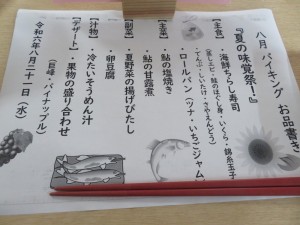 八月 バイキング お品書き
『夏の味覚祭!』
【主食】
・海鮮ちらし寿司
(蒸しエビ・鮭のほぐし身・いくら・錦糸玉子
・でんぶ・しいたけ・さやえんどう)
・ロールパン(ツナ・いちごジャム)
【主菜】
・鮎の塩焼き
・鮎の甘露煮
【副菜】
・夏野菜の揚げびたし
・卵豆腐
【汁物】
・冷たいそうめん汁
【デザート】
・果物の盛り合わせ
(巨峰・パイナップル)
令和六年八月二十一日(水)